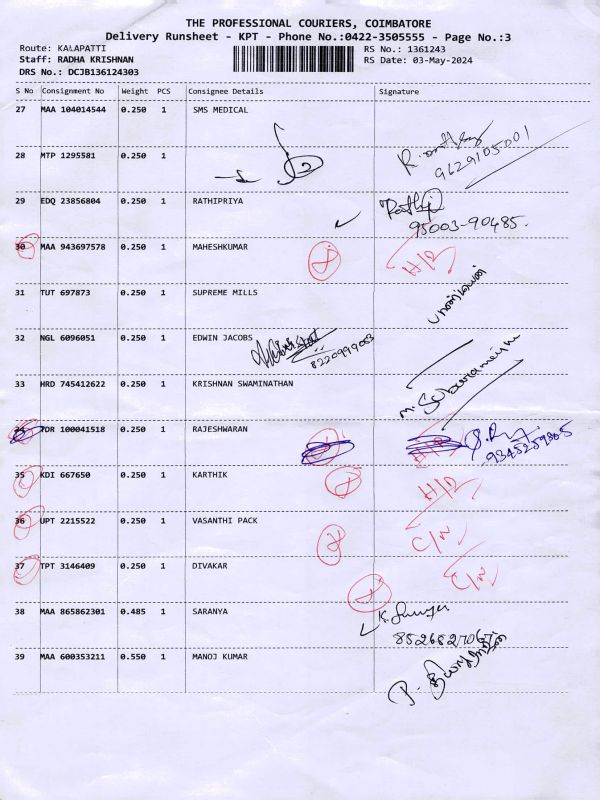 THE PROFESSIONAL COURIERS, COIMBATORE
Delivery Runsheet - KPT - Phone No.:0422-3505555 - Page No.:3
Route: KALAPATTI RS No.: 1361243
Staff: RADHA KRISHNAN RS Date: 03-May-2024
DRS No.: DCJB136124303
S No Consignment No Weight PCS Consignee Details Signature
27 MAA 104014544 0.250 1 SMS MEDICAL
28 MTP 1295581 0.250 1
9629105001
29 EDQ 23856804 0.250 1 RATHIPRIYA Rathi
95003-90485.
30 MAA 943697578 0.250 1 MAHESHKUMAR H/D
31 TUT 697873 0.250 1 SUPREME MILLS
32 NGL 6096051 0.250 1 EDWIN JACOBS
8220999003
33 HRD 745412622 0.250 1 KRISHNAN SWAMINATHAN
M. Subramani
34 PDR 100041518 0.250 1 RAJESHWARAN
35 KDI 667650 0.250 1 KARTHIK H/D
36 UPT 2215522 0.250 1 VASANTHI PACK C/N
37 TPT 3146409 0.250 1 DIVAKAR C/N
38 MAA 865862301 0.485 1 SARANYA
39 MAA 600353211 0.550 1 MANOJ KUMAR